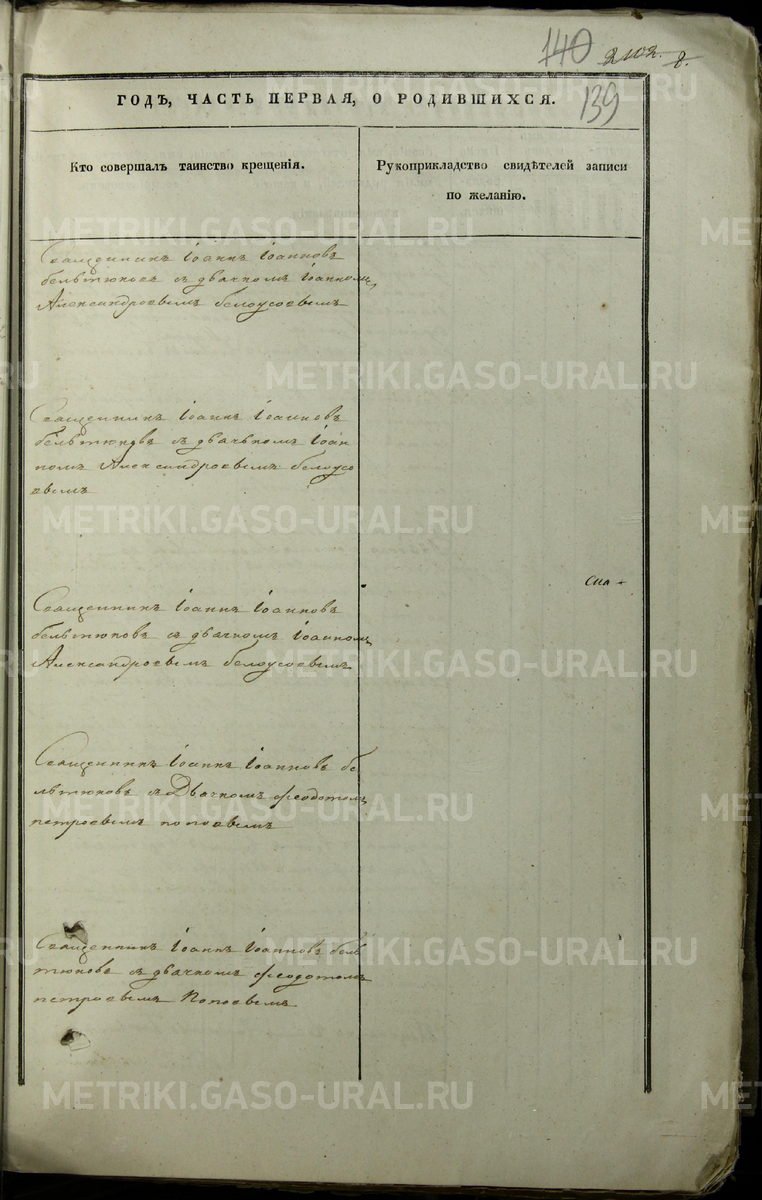 140
139
ГОДЪ, ЧАСТЬ ПЕРВАЯ, О РОДИВШИХСЯ.
Кто совершалъ таинство крещенія.
Рукоприкладство свидѣтелей записи
по желанію.
Священникъ Іоаннъ Іоанновъ
бельтюковъ съ дьячкомъ Іоанномъ
Александровымъ белоусовымъ
Священникъ Іоаннъ Іоанновъ
бельтюковъ съ дьячькомъ Іоан
номъ Александровымъ белоусо
вымъ
Священникъ Іоаннъ Іоанновъ
бельтюковъ съ дьячкомъ Іоанномъ
Александровымъ белоусовымъ
Священникъ Іоаннъ Іоанновъ бе
льтюковъ съ Дьячкомъ Феодотомъ
петровымъ поповымъ
Священникъ Іоаннъ Іоанновъ бель
тюковъ съ дьячкомъ Феодотомъ
петровымъ Поповымъ
METRIKI.GASO-URAL.RU